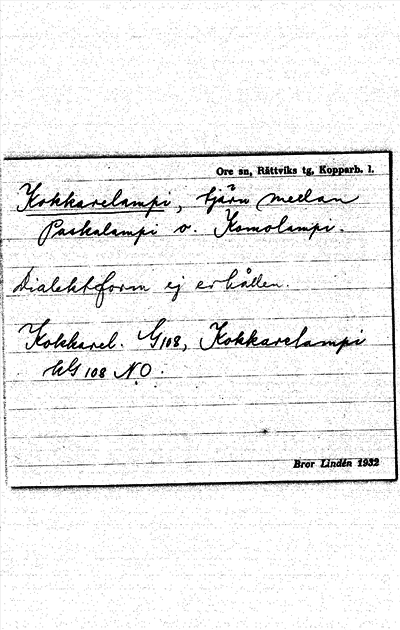 Ore sn, Rättviks tg, Kopparb. l.
Kokkarelampi, tjärn mellan
Paskalampi o. Komolampi.
Dialektform ej erhållen.
Kokkarel. G108, Kokkarelampi
108 NO.
Bror Lindén 1932